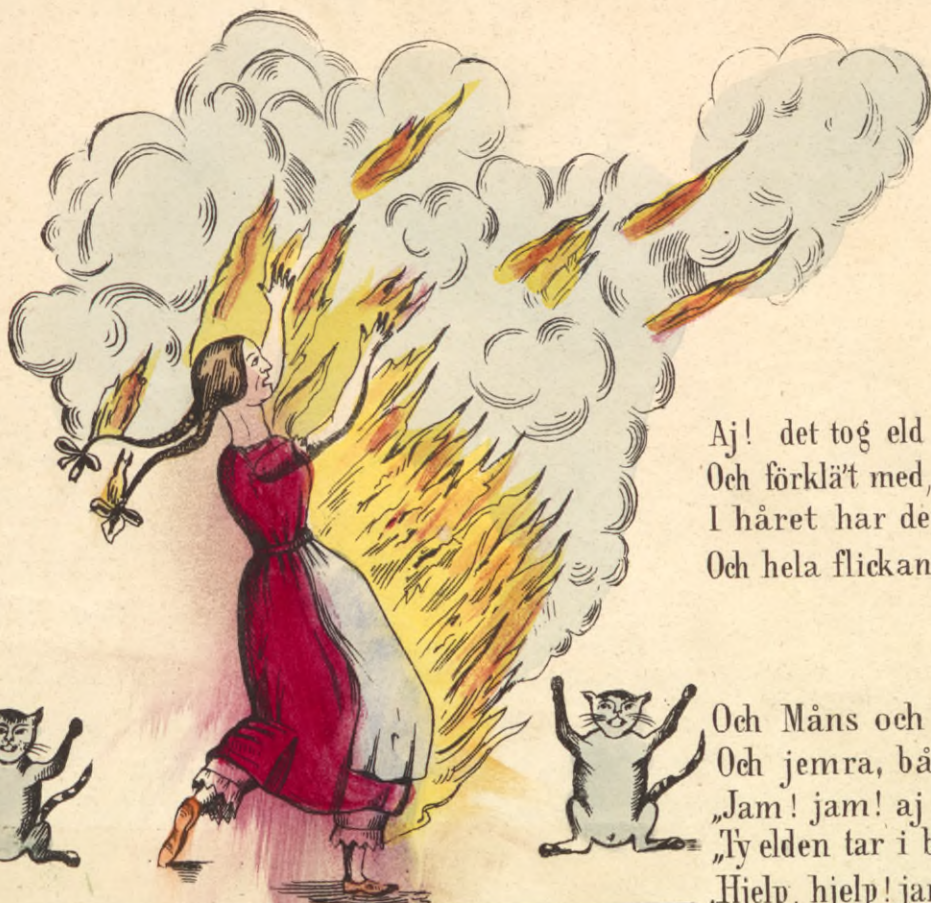 Aj! det tog eld
Och förklä't med,
I håret har de
Och hela flickan
Och Måns och
Och jemra, bå
„Jam! jam! aj
„Ty elden tar i b
„Hjelp, hjelp! jam